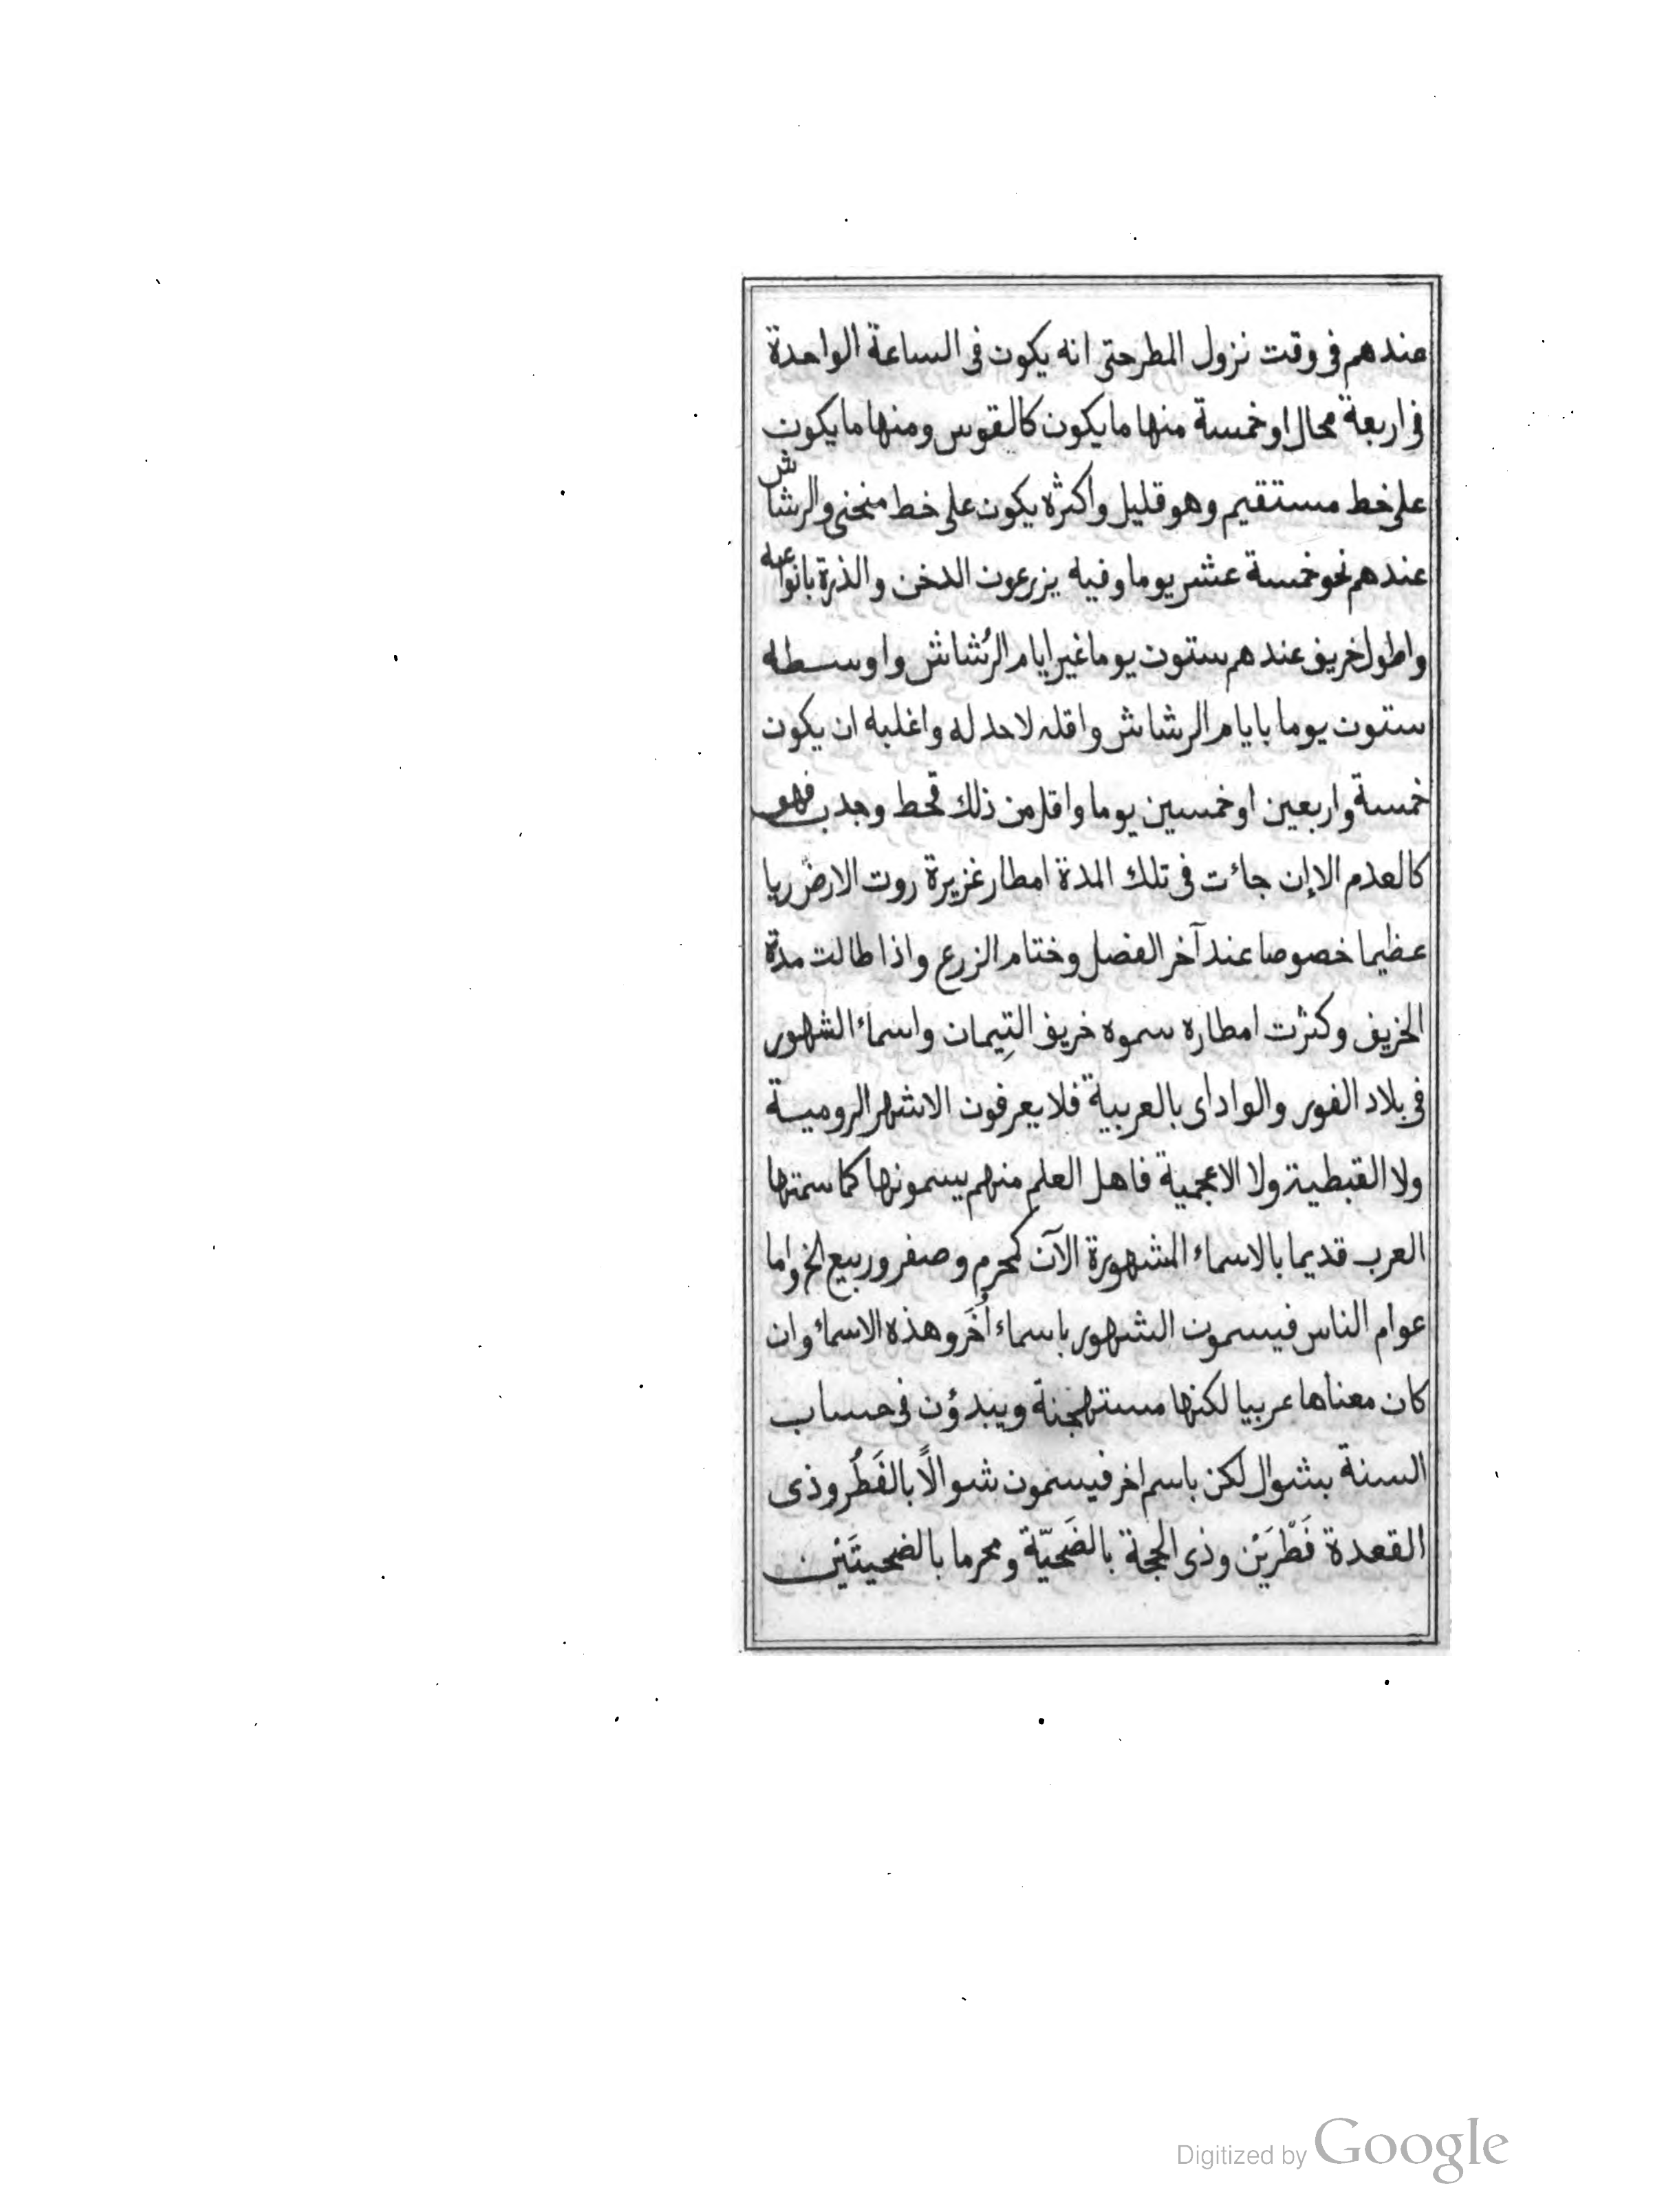 عندهم فى وقت نزول المطر حتى انه يكون فى الساعة الواحدة
فى اربعة محال او خمسة منها ما يكون كالقوس ومنها ما يكون
على خط مستقيم وهو قليل واكثره يكون على خط منحنى والرشاش
عندهم نحو خمسة عشر يوما وفيه يزرعون الدخن والذرة بانواعه
واطول خريف عندهم ستون يوما غير ايام الرُشاش واوسطه
ستون يوما بايام الرشاش واقله لاحد له واغلبه ان يكون
خمسة واربعين او خمسين يوما واقل من ذلك قحط وجدب فهو
كالعدم الا إن جاءت فى تلك المدة امطار غزيرة روت الارض ريا
عظيما خصوصا عند آخر الفضل وختام الزرع واذا طالت مدة
الخريف وكثرت امطاره سموه خريف التِيمان واسماء الشهور
فى بلاد الفور والواداى بالعربية فلا يعرفون الاشهر الرومية
ولا القبطية ولا الاعجمية فاهل العلم منهم يسمونها كما سمتها
العرب قديما بالاسماء المشهورة الآن كمحرم وصفر وربيع الخ واما
عوام الناس فيسمون الشهور باسماء أُخَر وهذه الاسماء وان
كان معناها عربيا لكنها مستهجنة ويبدؤن فى حساب
السنة بشوال لكن باسم اخر فيسمون شوالًا بالفَطُر وذى
القعدة فَطْرَيْن وذى الحجة بالضَحيّة ومحرما بالضحيتَيْن
Digitized by Google